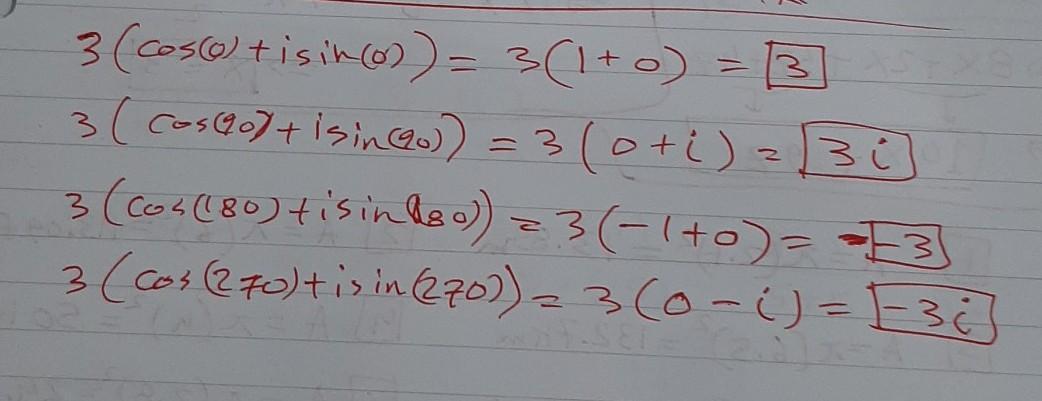 3(cos(0)+isin(0))= 3(1+0) = 3
3( cos(90)+isin(90)) = 3(0+i) = 3i
3(cos(180)+isin(180)) = 3(-1+0)= -3
3(cos(270)+isin(270)) = 3(0-i) = -3i